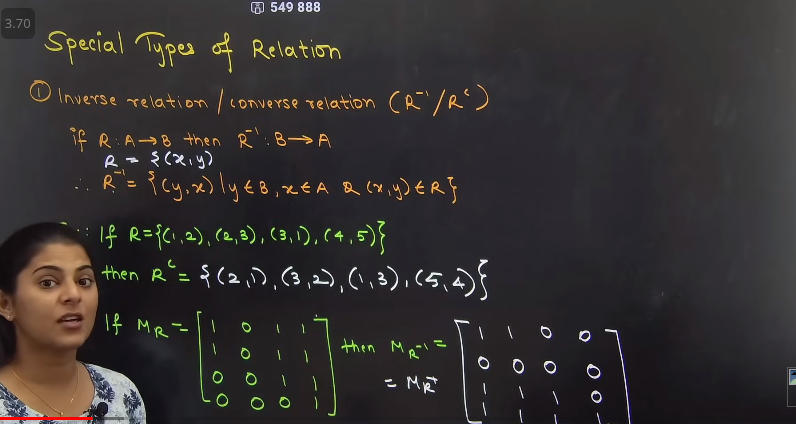 549 888
3.70
Special Types of Relation
① Inverse relation / converse relation (R⁻¹/Rᶜ)
if R : A → B then R⁻¹ : B → A
R = {(x,y)
∴ R⁻¹ = {(y,x) | y ∈ B, x ∈ A & (x,y) ∈ R}
: If R = {(1,2), (2,3), (3,1), (4,5)}
then Rᶜ = {(2,1), (3,2), (1,3), (5,4)}
If M_R = [ 1 0 1 1 then M_R⁻¹ = [ 1 1 0 0
1 0 1 1 0 0 0 0
0 0 1 1 = M_Rᵀ 1 1 1 0
0 0 0 1 ] 1 1 1 1